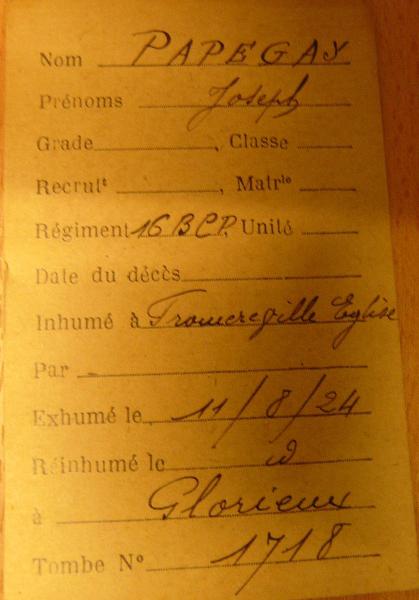 Nom PAPEGAY
Prénoms Joseph
Grade , Classe
Recrutt , Matrle
Régiment 16 BCP, Unité
Date du décès
Inhumé à Fromereville Eglise
Par
Exhumé le 11/8/24
Réinhumé le id
à Glorieux
Tombe No 1718